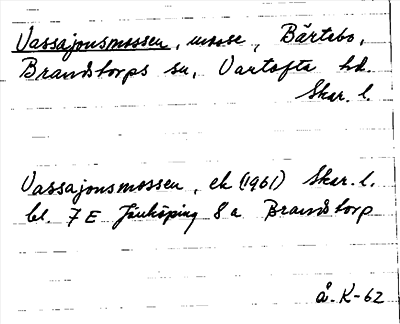 Vassajonsmossen, mosse, Bärtebo,
Brandstorps sn, Vartofta hd.
Skar. l.
Vassajonsmossen, ek (1961) Skar. l.
bl. 7 E Jönköping 8 a Brandstorp
å. K-62